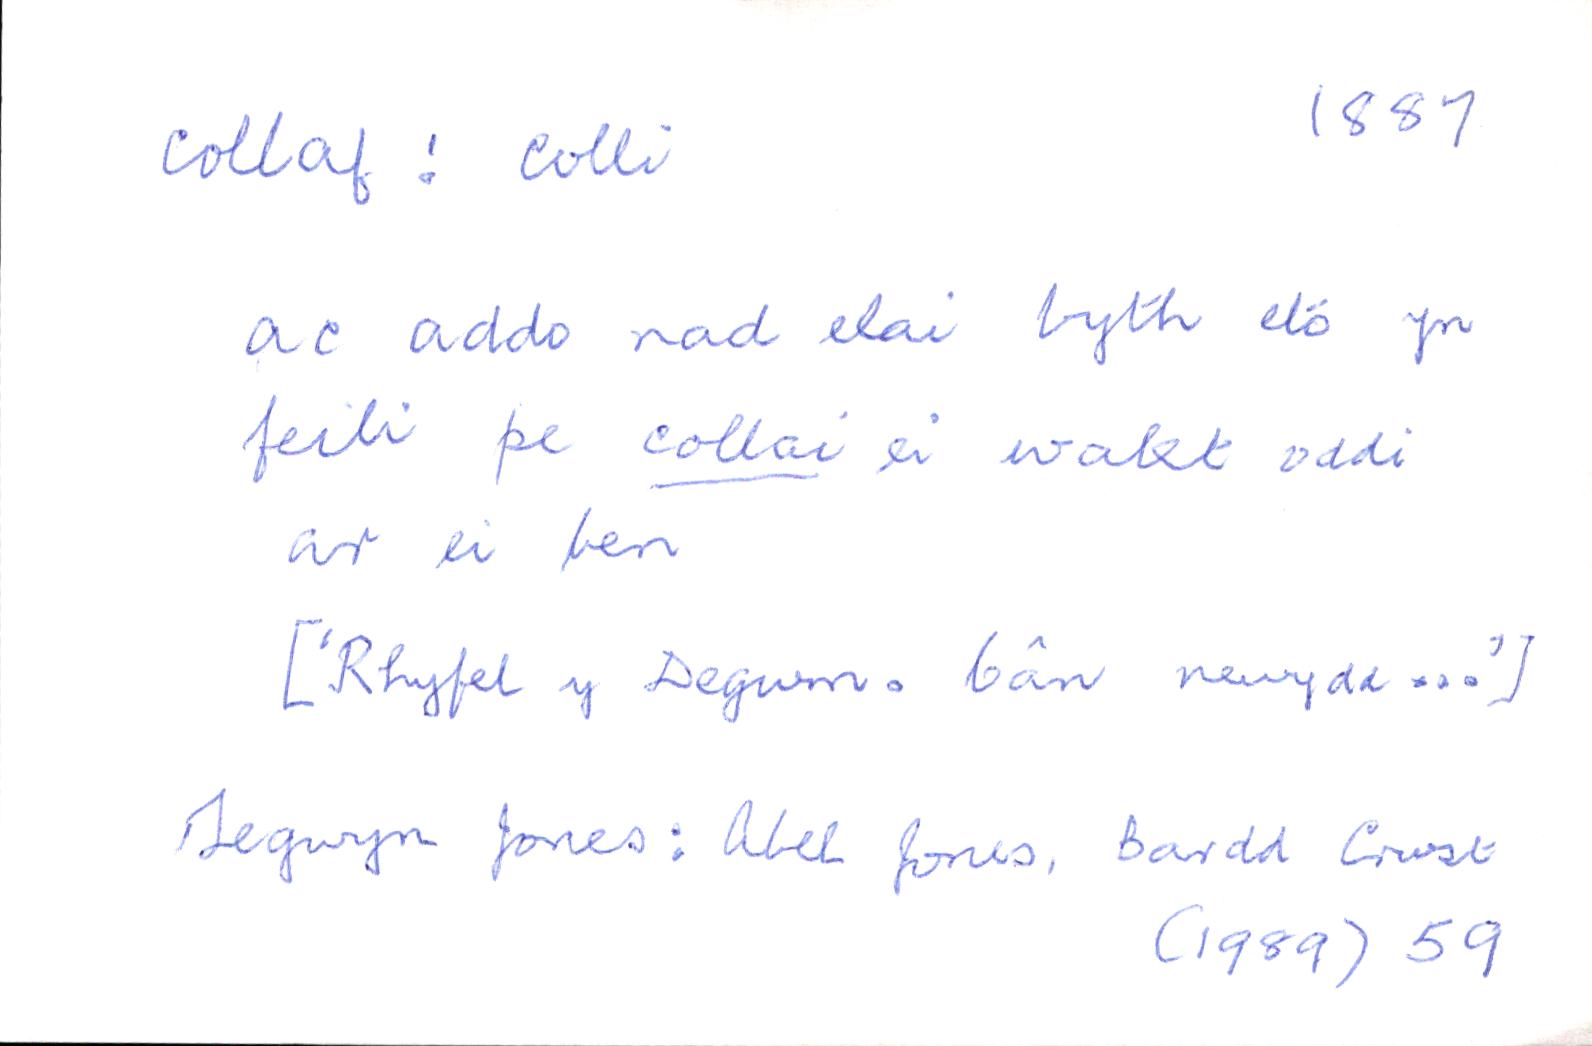 collaf : colli 1887
ac addo nad elai byth eto yn
feili pe collai ei wallt oddi
ar ei ben
['Rhyfel y Degwm. Cân newydd...']
Tegwyn Jones: Abel Jones, Bardd Crwst
(1989) 59